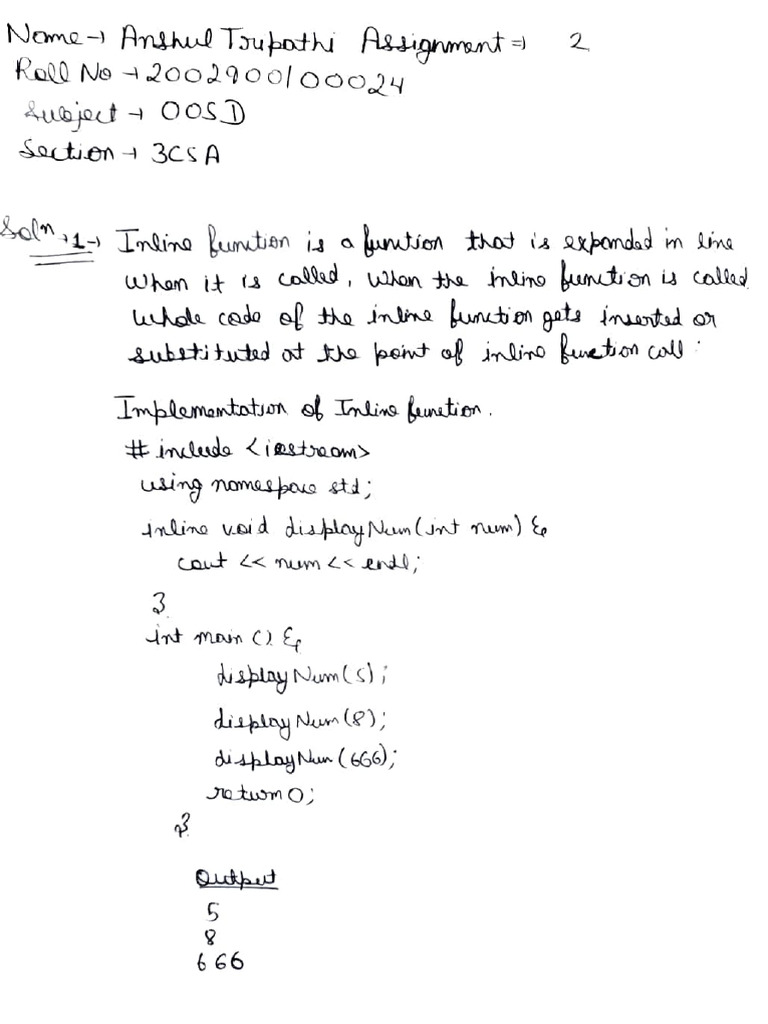 Name → Anshul Tripathi Assignment ⇒ 2
Roll No → 2002900100024
Subject → OOSD
Section → 3CSA
Solⁿ → 1 → Inline function is a function that is expanded in line
when it is called, when the inline function is called
whole code of the inline function gets inserted or
substituted at the point of inline function call.
Implementation of Inline function.
# include <iostream>
using namespace std;
inline void displayNum(int num) {
cout << num << endl;
}
int main () {
displayNum(5);
displayNum(8);
displayNum(666);
return 0;
}
Output
5
8
666